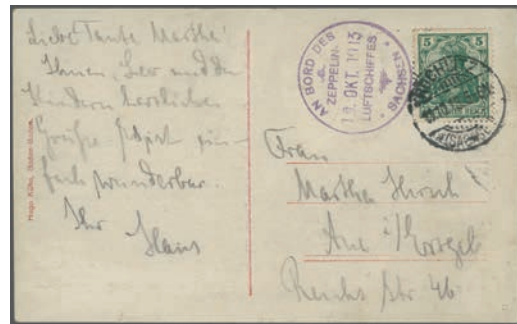 Liebe Tante Martha!
Ihnen, Leo und den
Kindern herzliche
Grüße. Es ist ein-
fach wunderbar.
Ihr Hans
Hugo Kühn, Baden-Baden.
AN BORD DES
ZEPPELIN-
19. OKT. 1913
LUFTSCHIFFES
* SACHSEN *
5 5
DEUTSCHES REICH
Frau
Martha Hirsch
Aue i/Erzgeb
Reichs Str 46